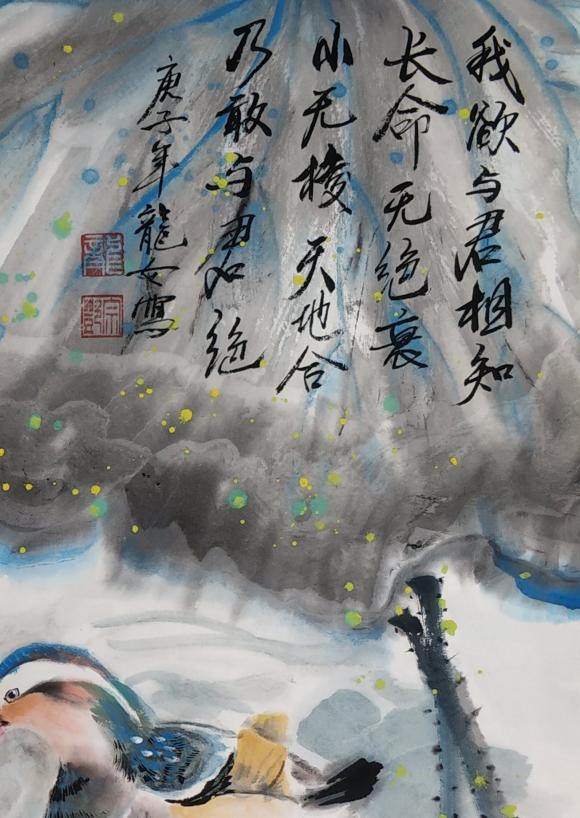 我欲与君相知
长命无绝衰
山无棱 天地合
乃敢与君绝
庚子年龍女寫